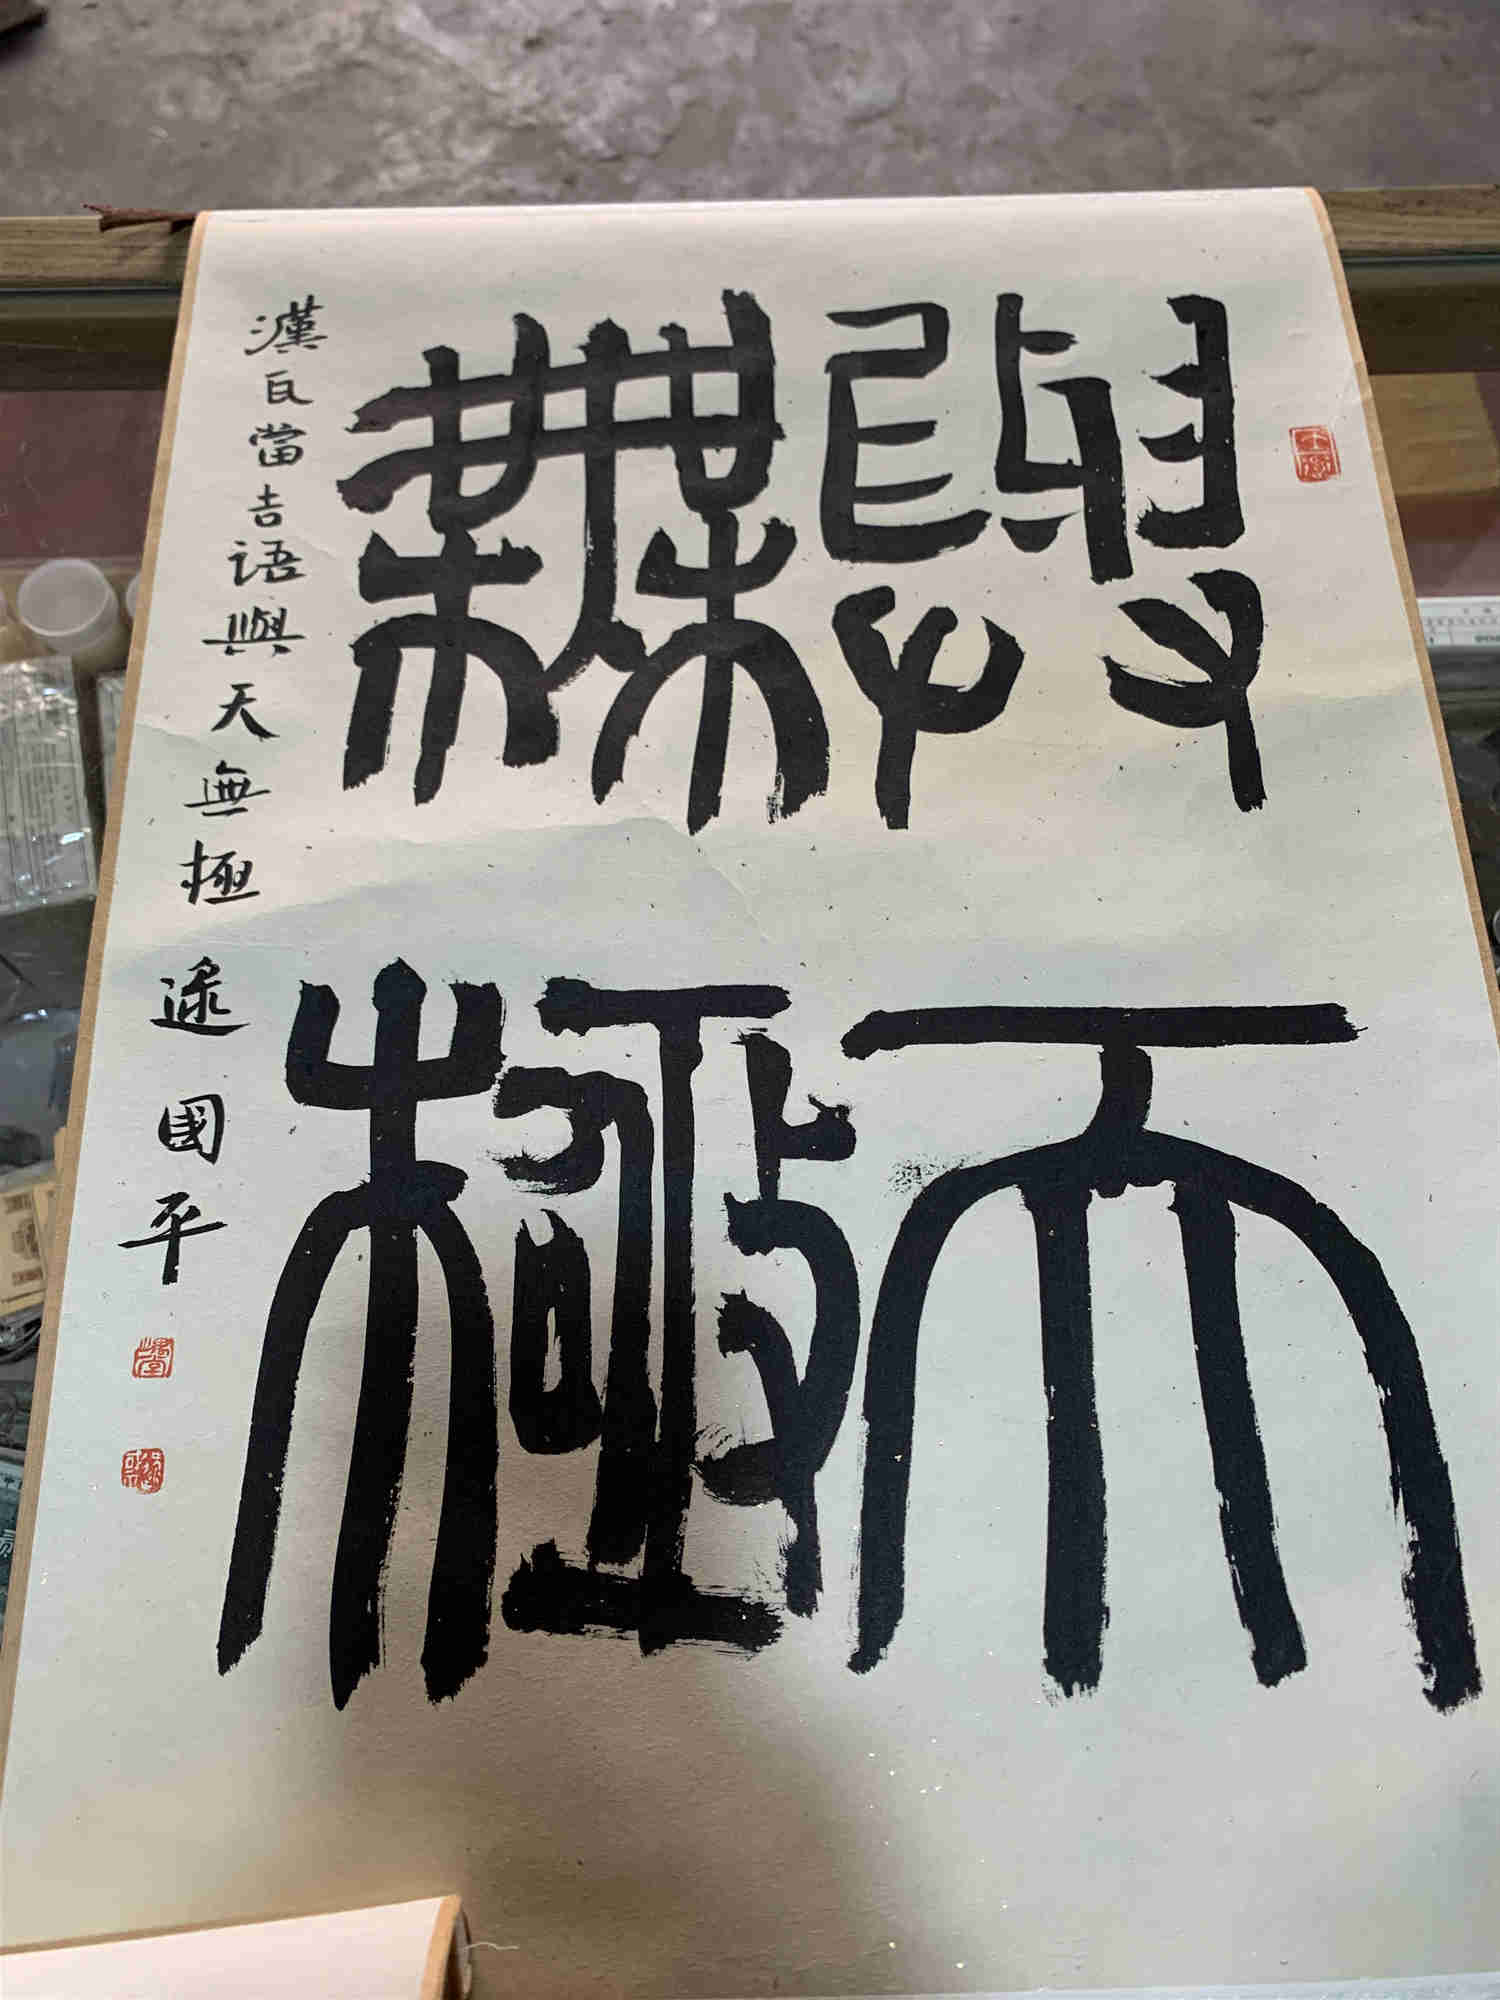 與天
無極
漢瓦當吉語與天無極 逯國平